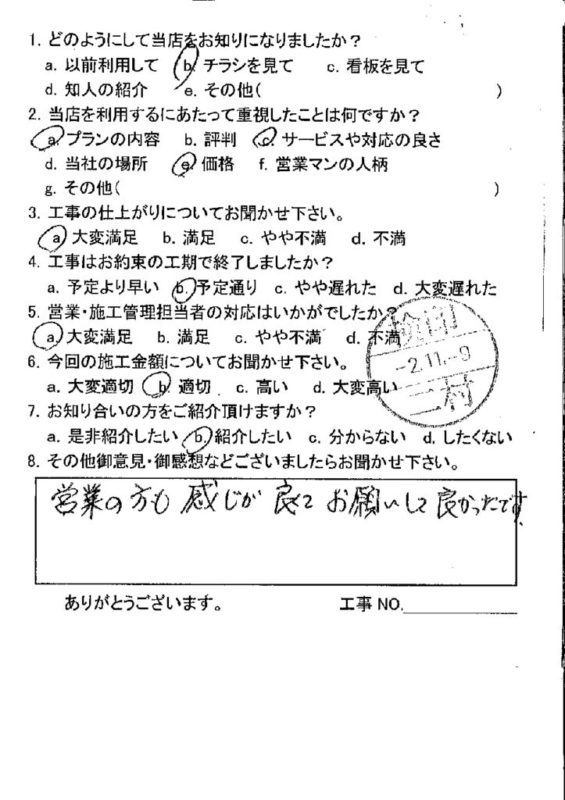 1. どのようにして当店をお知りになりましたか？
a. 以前利用して b. チラシを見て c. 看板を見て
d. 知人の紹介 e. その他( )
2. 当店を利用するにあたって重視したことは何ですか？
a. プランの内容 b. 評判 c. サービスや対応の良さ
d. 当社の場所 e. 価格 f. 営業マンの人柄
g. その他( )
3. 工事の仕上がりについてお聞かせ下さい。
a 大変満足 b. 満足 c. やや不満 d. 不満
4. 工事はお約束の工期で終了しましたか？
a. 予定より早い b. 予定通り c. やや遅れた d. 大変遅れた
5. 営業・施工管理担当者の対応はいかがでしたか？
a. 大変満足 b. 満足 c. やや不満 d. 不満
検印
-2.11.-9
二村
6. 今回の施工金額についてお聞かせ下さい。
a. 大変適切 b. 適切 c. 高い d. 大変高い
7. お知り合いの方をご紹介頂けますか？
a. 是非紹介したい b. 紹介したい c. 分からない d. したくない
8. その他御意見・御感想などございましたらお聞かせ下さい。
営業の方も 感じが 良くて お願いして 良かったです.
ありがとうございます。 工事 NO.